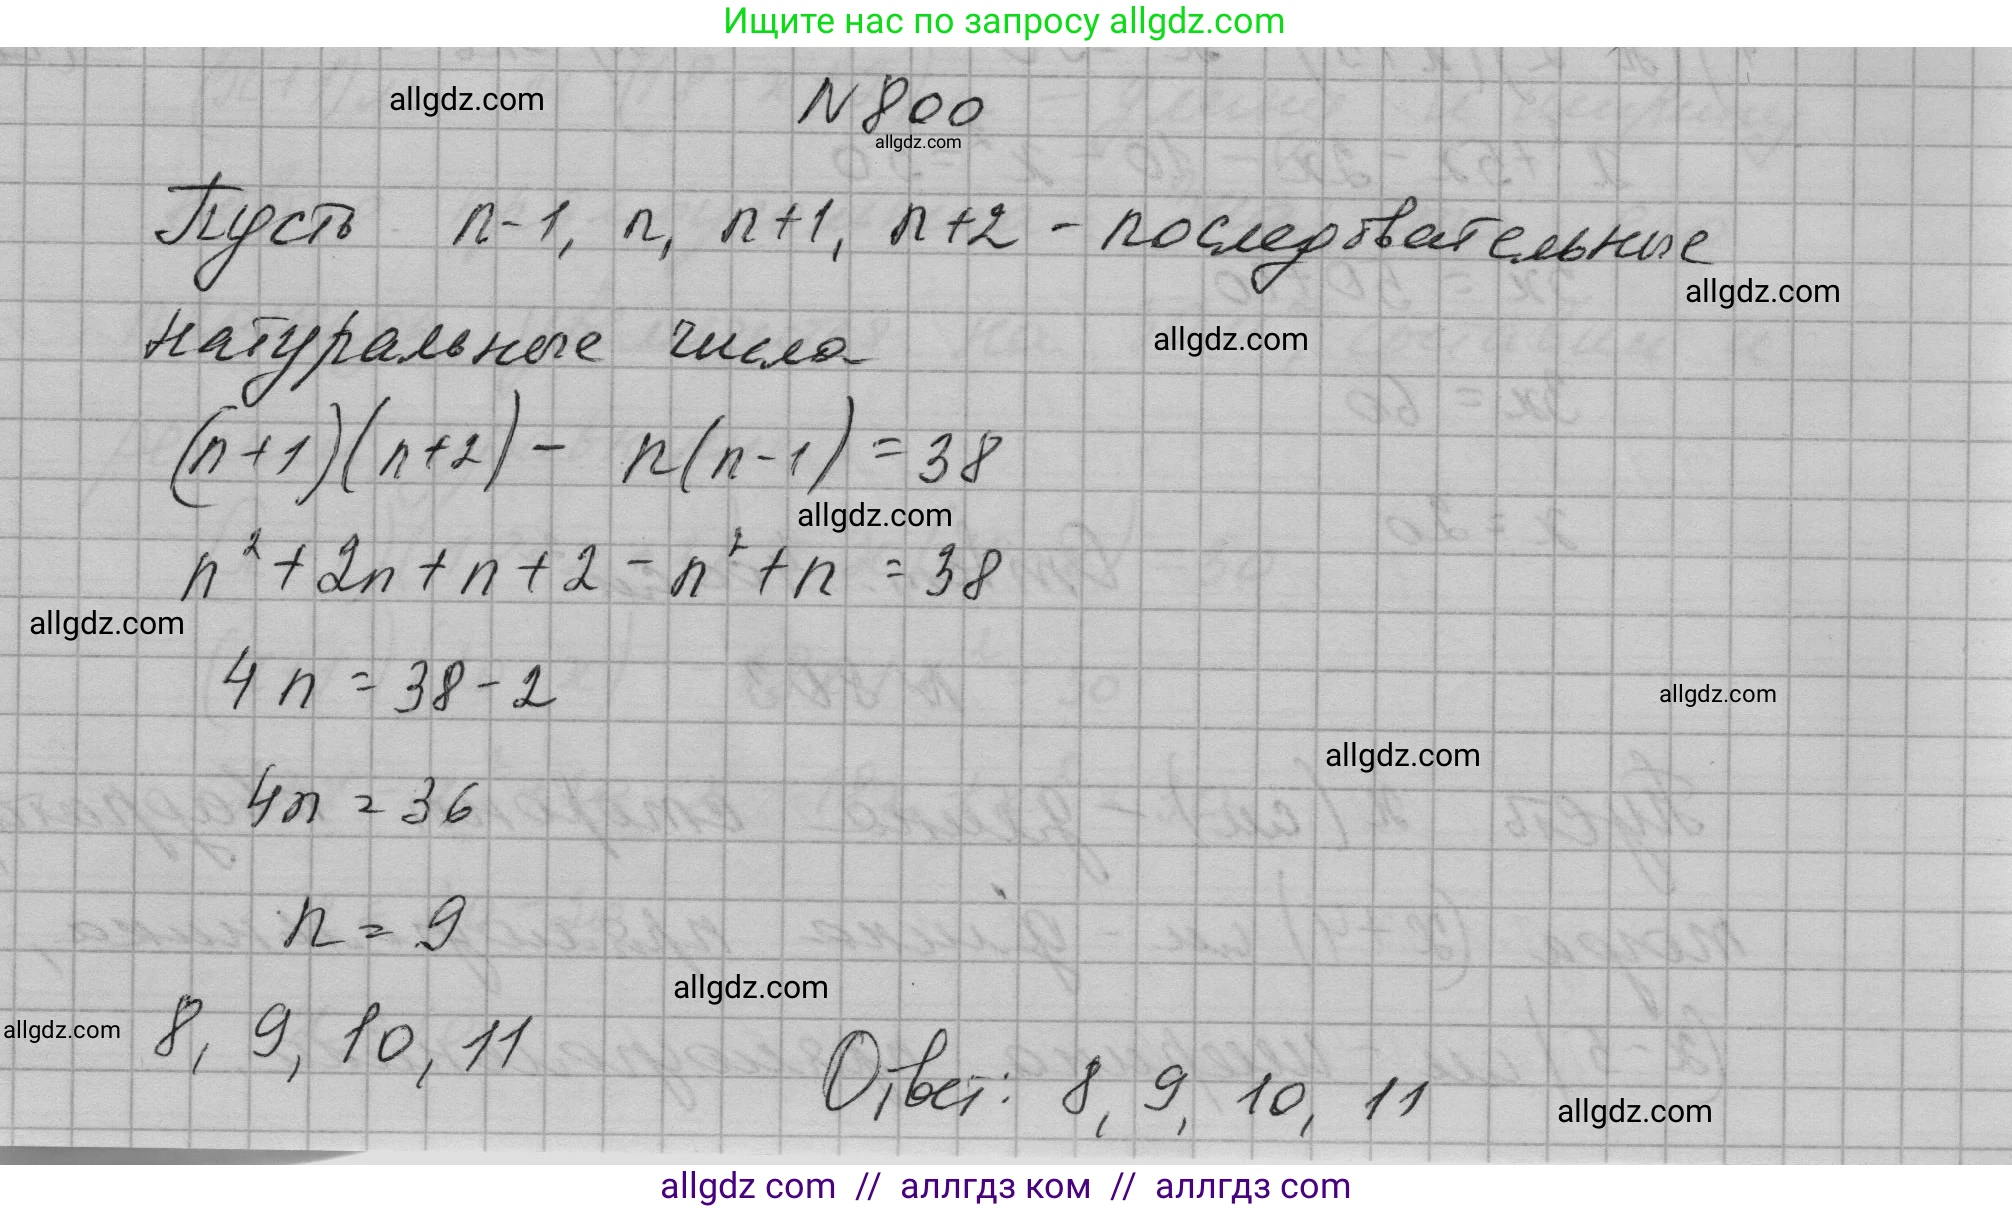 Ищите нас по запросу allgdz.com
allgdz.com
N 800
allgdz.com
Пусть n-1, n, n+1, n+2 - последовательные
allgdz.com
натуральные числа
allgdz.com
(n+1)(n+2) - n(n-1) = 38
allgdz.com
n² + 2n + n + 2 - n² + n = 38
allgdz.com
4n = 38 - 2
allgdz.com
allgdz.com
4n = 36
n = 9
allgdz.com
8, 9, 10, 11
allgdz.com
Ответ: 8, 9, 10, 11
allgdz.com
allgdz com // аллгдз ком // аллгдз com